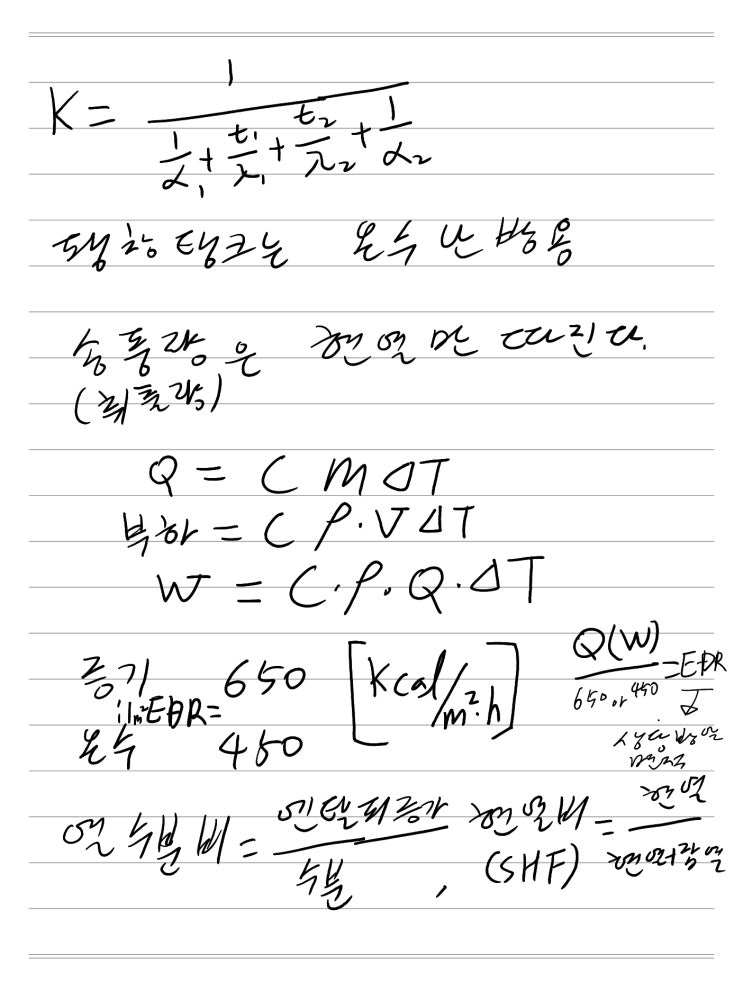 K = 1 / (1/α₁ + t₁/λ₁ + t₂/λ₂ + 1/α₂)
팽창탱크는 온수난방용
송풍량은 현열만 따진다.
(취출량)
Q = C M ΔT
부하 = C ρ·V ΔT
W = C·ρ·Q·ΔT
증기 650 [Kcal/m²·h]
1m²EDR=
온수 450
Q(W) / 650 or 450 = EDR
상당방열
면적
열수분비 = 엔탈피증가 / 수분, 현열비 (SHF) = 현열 / 현열+잠열